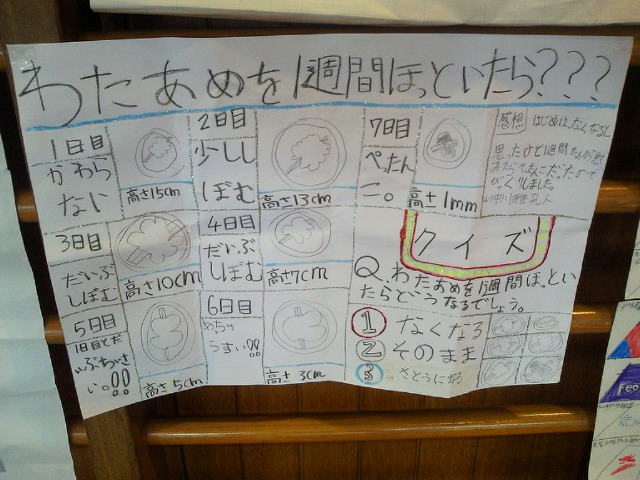 わたあめを1週間ほっといたら???
1日目
かわら
ない
高さ15cm
2日目
少しし
ぼむ
高さ13cm
3日目
だいぶ
しぼむ
高さ10cm
4日目
だいぶ
しぼむ
高さ7cm
5日目
1日目とだ
いぶちいさ
い。!!
高さ5cm
6日目
めちゃ
うすい!!
高さ3cm
7日目
ぺったん
こ。
高さ1mm
感想 はじめは、なくなると
クイズ
Q.わたあめを1週間ほっとい
たらどうなるでしょう。
1 なくなる
2 そのまま
3 さとうになる
Feo